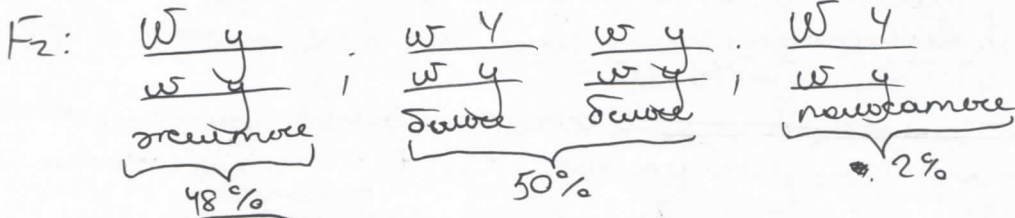 F₂: W y ; w Y w y ; W Y
w y w y w y w y
желтые белые белые полосатые
48% 50% 2%